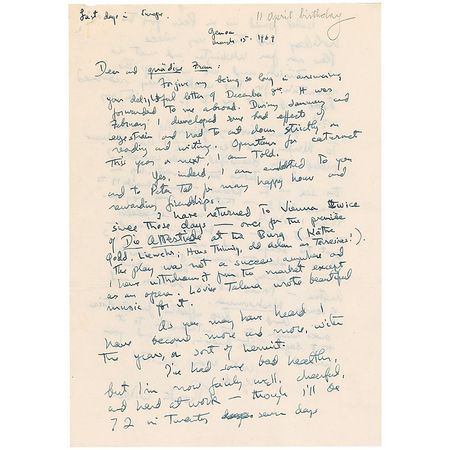 Last days in Europe.
11 April birthday
Genoa
March 15. 1969
Dear and gnädige Frau:
Forgive my being so long in answering
your delightful letter of December 8th. It was
forwarded to me abroad. During January and
February I developed some bad effects of
eyestrain and had to cut down strictly on
reading and writing. Operations for cataract
this year or next, I am told.
Yes, indeed, I am indebted to you
and to Peter for many happy hours and
rewarding friendships.
I have returned to Vienna twice
since those days — once for the première
of Die Alkestiade at the Burg (Käthe
Gold, Liewehr; Hans Thimig, did as Teiresias!).
The play was not a success anywhere and
I have withdrawn it from the market except
as an opera. Louise Talma wrote beautiful
music for it.
As you may have heard I
have become more and more, with
the years, a sort of hermit.
I've had some bad health,
but I'm now fairly well, cheerful,
and hard at work — though I'll be
72 in twenty seven days